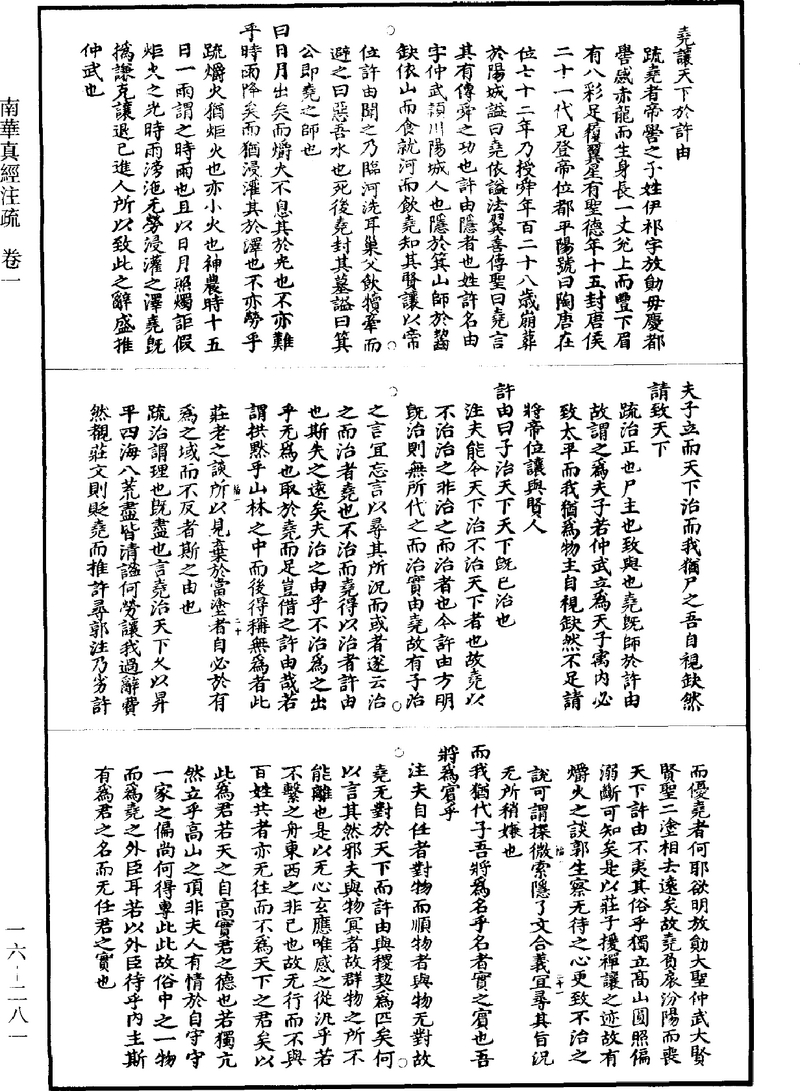 南華真經注疏　卷一
一六-二八一
堯讓天下於許由
疏堯者帝嚳之子姓伊祁字放勛毋慶都
嚳感赤龍而生身長一丈兊上而豐下眉
有八彩足履翼星有聖德年十五封唐侯
二十一代兄登帝位都平陽號曰陶唐在
位七十二年乃授舜年百二十八歲崩葬
於陽城謚曰堯依謚法翼善傳聖曰堯言
其有傳舜之功也許由隱者也姓許名由
字仲武潁川陽城人也隱於箕山師於齧
缺依山而食就河而飲堯知其賢讓以帝
位許由聞之乃臨河洗耳巢父飲犢牽而
避之曰惡吾水也死後堯封其墓謚曰箕
公即堯之師也
曰日月出矣而爝火不息其於光也不亦難
乎時雨降矣而猶浸灌其於澤也不亦勞乎
疏爝火猶炬火也亦小火也神農時十五
日一雨謂之時雨也且以日月照燭詎假
炬火之光時雨滂沲无勞浸灌之澤堯既
撝謙克讓退已進人所以致此之辭盛推
仲武也
夫子立而天下治而我猶尸之吾自視缺然
請致天下
疏治正也尸主也致與也堯既師於許由
故謂之爲夫子若仲武立爲天子寓内必
致太平而我猶爲物主自視缺然不足請
將帝位讓與賢人
許由曰子治天下天下既已治也
注夫能令天下治不治天下者也故堯以
不治治之非治之而治者也今許由方明
既治則無所代之而治實由堯故有子治
之言宜忘言以尋其所況而或者遂云治
之而治者堯也不治而堯得以治者許由
也斯失之遠矣夫治之由乎不治爲之出
乎无爲也取於堯而足豈借之許由哉若
謂拱默乎山林之中而後得稱無爲者此
莊老之談所以見棄於當塗者自必於有
爲之域而不反者斯之由也
疏治謂理也既盡也言堯治天下久以昇
平四海八荒盡皆清謐何勞讓我過辭費
然覩莊文則貶堯而推許尋郭注乃劣許
而優堯者何耶欲明放勛大聖仲武大賢
賢聖二塗相去遠矣故堯負扆汾陽而喪
天下許由不夷其俗乎獨立高山圓照偏
溺斷可知矣是以莊子援禪讓之迹故有
爝火之談郭生察无待之心更致不治之
說可謂探微索隱了文合義宜尋其旨況
无所稍嫌也
而我猶代子吾將爲名乎名者實之賓也吾
將爲賓乎
注夫自任者對物而順物者與物无對故
堯无對於天下而許由與稷契爲匹矣何
以言其然邪夫與物冥者故群物之所不
能離也是以无心玄應唯感之從汎乎若
不繫之舟東西之非己也故无行而不與
百姓共者亦无往而不爲天下之君矣以
此爲君若天之自高實君之德也若獨亢
然立乎高山之頂非夫人有情於自守守
一家之偏尚何得專此此故俗中之一物
而爲堯之外臣耳若以外臣待乎内主斯
有爲君之名而无任君之實也